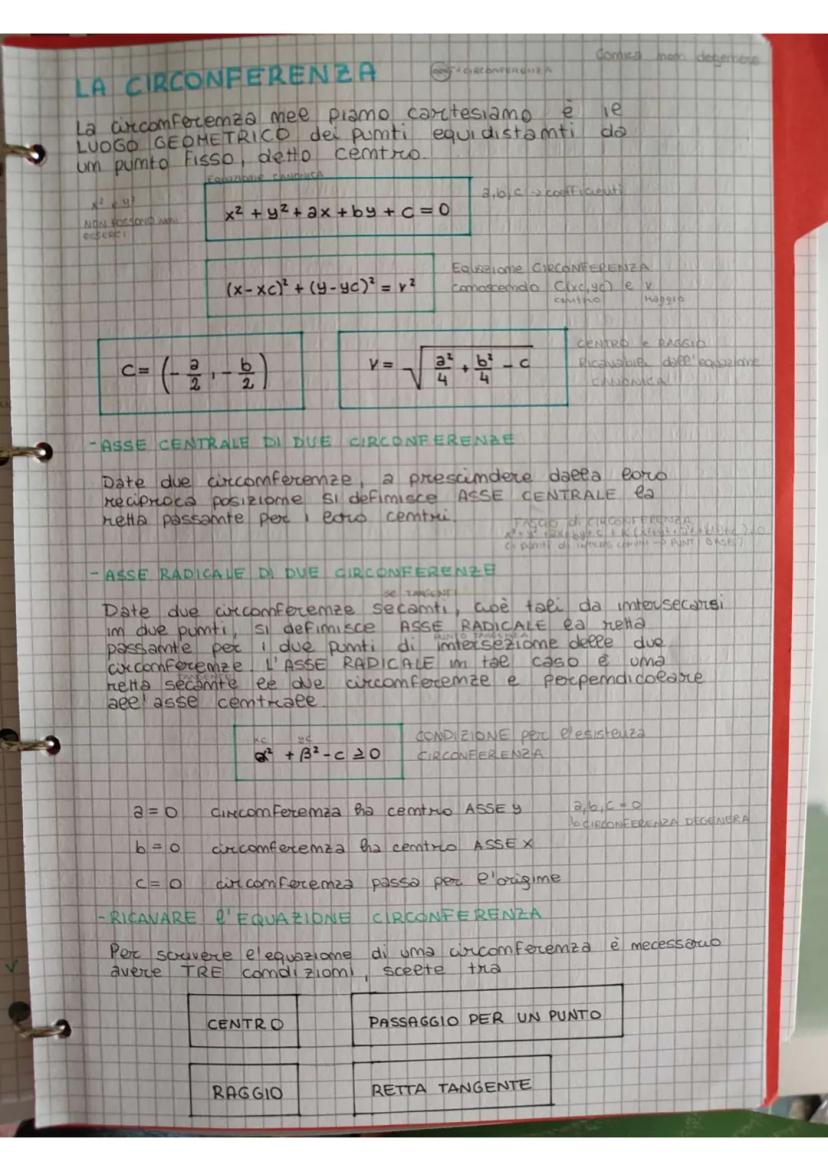 Conica non degenere
LA CIRCONFERENZA
CIRCONFERENZA
La circonferenza nel piano cartesiano è il
LUOGO GEOMETRICO dei punti equidistanti da
un punto fisso, detto centro.
EQUAZIONE CANONICA
x² e y²
NON POSSONO non
esserci
x² + y² + ax + by + c = 0
a,b,c → coefficienti
(x-xc)² + (y-yc)² = r²
Equazione CIRCONFERENZA
conoscendo C(xc,yc) e r
centro raggio
C = (-a/2, -b/2)
r = √(a²/4 + b²/4 - c)
CENTRO e RAGGIO
Ricavabili dall'equazione
CANONICA
- ASSE CENTRALE DI DUE CIRCONFERENZE
Date due circonferenze, a prescindere dalla loro
reciproca posizione si definisce ASSE CENTRALE la
retta passante per i loro centri.
FASCIO di CIRCONFERENZA
- ASSE RADICALE DI DUE CIRCONFERENZE
se TANGENTI
Date due circonferenze secanti, cioè tali da intersecarsi
in due punti, si definisce ASSE RADICALE la retta
passante per i due punti di intersezione delle due
circonferenze. L'ASSE RADICALE in tal caso è una
retta secante le due circonferenze e perpendicolare
all'asse centrale.
xc yc
α² + β² - c ≥ 0
CONDIZIONE per l'esistenza
CIRCONFERENZA
a = 0 circonferenza ha centro ASSE y
a,b,c = 0
CIRCONFERENZA DEGENERA
b = 0 circonferenza ha centro ASSE x
c = 0 circonferenza passa per l'origine
- RICAVARE l'EQUAZIONE CIRCONFERENZA
Per scrivere l'equazione di una circonferenza è necessario
avere TRE condizioni, scelte tra
CENTRO
PASSAGGIO PER UN PUNTO
RAGGIO
RETTA TANGENTE